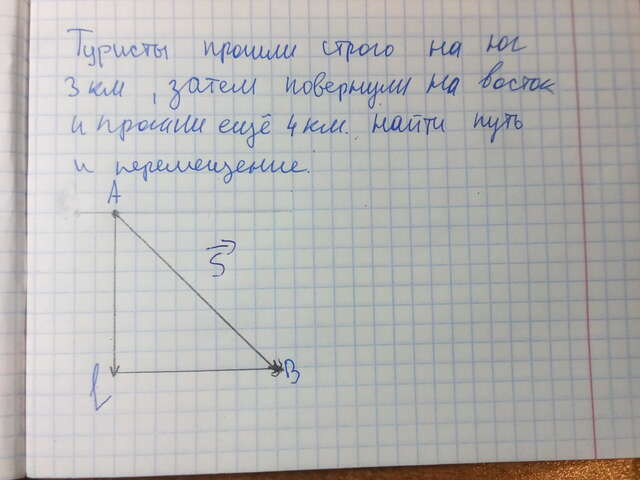 Туристы прошли строго на юг
3 км, затем повернули на восток
и прошли ещё 4 км. найти путь
и перемещение.
A
S
l
B